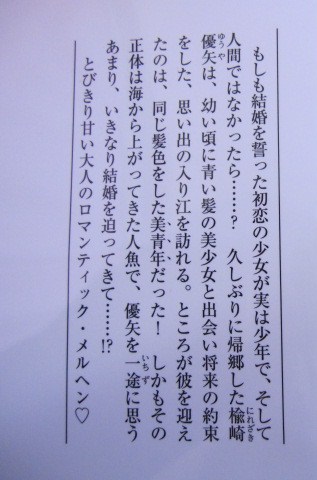 もしも結婚を誓った初恋の少女が実は少年で、そして
人間ではなかったら……？　久しぶりに帰郷した楡崎
優矢は、幼い頃に青い髪の美少女と出会い将来の約束
をした、思い出の入り江を訪れる。ところが彼を迎え
たのは、同じ髪色をした美青年だった！　しかもその
正体は海から上がってきた人魚で、優矢を一途に思う
あまり、いきなり結婚を迫ってきて……!?
とびきり甘い大人のロマンティック・メルヘン♡